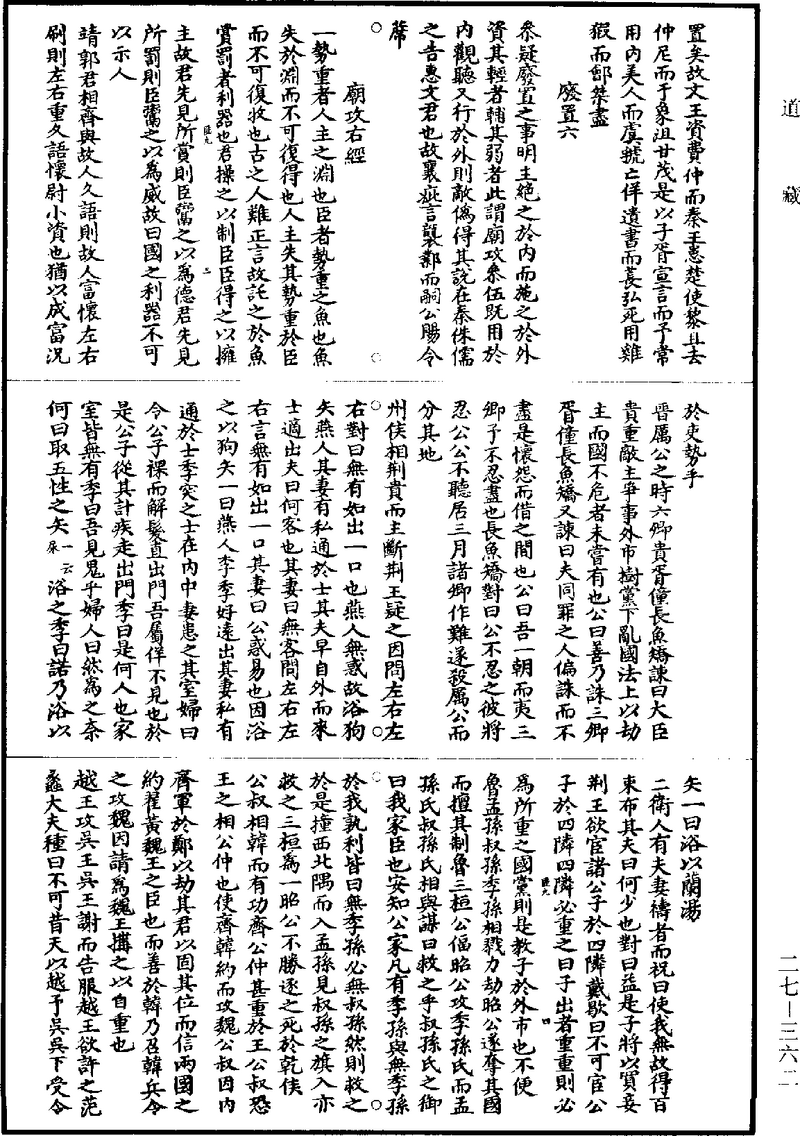 道藏
置矣故文王資費仲而秦王患楚使黎且去
仲尼而干象沮甘茂是以子胥宣言而子常
用內美人而虞虢亡佯遺書而萇弘死用雞
猳而鄶桀盡
廢置六
參疑廢置之事明主絕之於內而施之於外
資其輕者輔其弱者此謂廟攻參伍既用於
內觀聽又行於外則敵偽得其說在秦侏儒
之告惠文君也故襄疵言襲鄴而嗣公賜令
蓆
廟攻右經
一勢重者人主之淵也臣者勢重之魚也魚
失於淵而不可復得也人主失其勢重於臣
而不可復收也古之人難正言故託之於魚
賞罰者利器也君操之以制臣臣得之以擁
主故君先見所賞則臣鬻之以為德君先見
所罰則臣鬻之以為威故曰國之利器不可
以示人
靖郭君相齊與故人久語則故人富懷左右
刷則左右重久語懷尉小資也猶以成富況
於吏勢乎
晉厲公之時六卿貴胥僮長魚矯諫曰大臣
貴重敵主爭事外市樹黨下亂國法上以劫
主而國不危者未嘗有也公曰善乃誅三卿
胥僮長魚矯又諫曰夫同罪之人偏誅而不
盡是懷怨而借之間也公曰吾一朝而夷三
卿予不忍盡也長魚矯對曰公不忍之彼將
忍公公不聽居三月諸卿作難遂殺厲公而
分其地
州侯相荆貴而主斷荆王疑之因問左右左
右對曰無有如出一口也燕人無惑故浴狗
矢燕人其妻有私通於士其夫早自外而來
士適出夫曰何客也其妻曰無客問左右左
右言無有如出一口其妻曰公惑易也因浴
之以狗矢一曰燕人李季好遠出其妻私有
通於士季突之士在內中妻患之其室婦曰
令公子裸而解髮直出門吾屬佯不見也於
是公子從其計疾走出門季曰是何人也家
室皆無有季曰吾見鬼乎婦人曰然為之奈
何曰取五性之矢一云屎浴之季曰諾乃浴以
矢一曰浴以蘭湯
二衛人有夫妻禱者而祝曰使我無故得百
束布其夫曰何少也對曰益是子將以買妾
荆王欲宦諸公子於四隣戴歇曰不可宦公
子於四隣四隣必重之曰子出者重重則必
為所重之國黨則是教子於外市也不便
魯孟孫叔孫季孫相戮力劫昭公遂奪其國
而擅其制魯三桓公偪昭公攻季孫氏而孟
孫氏叔孫氏相與謀曰救之乎叔孫氏之御
曰我家臣也安知公家凡有季孫與無季孫
於我孰利皆曰無季孫必無叔孫然則救之
於是撞西北隅而入孟孫見叔孫之旗入亦
救之三桓為一昭公不勝逐之死於乾侯
公叔相韓而有功齊公仲甚重於王公叔恐
王之相公仲也使齊韓約而攻魏公叔因內
齊軍於鄭以劫其君以固其位而信兩國之
約翟黃魏王之臣也而善於韓乃召韓兵令
之攻魏因請為魏王搆之以自重也
越王攻吳王吳王謝而告服越王欲許之范
蠡大夫種曰不可昔天以越予吳吳下受令
二七—三六二